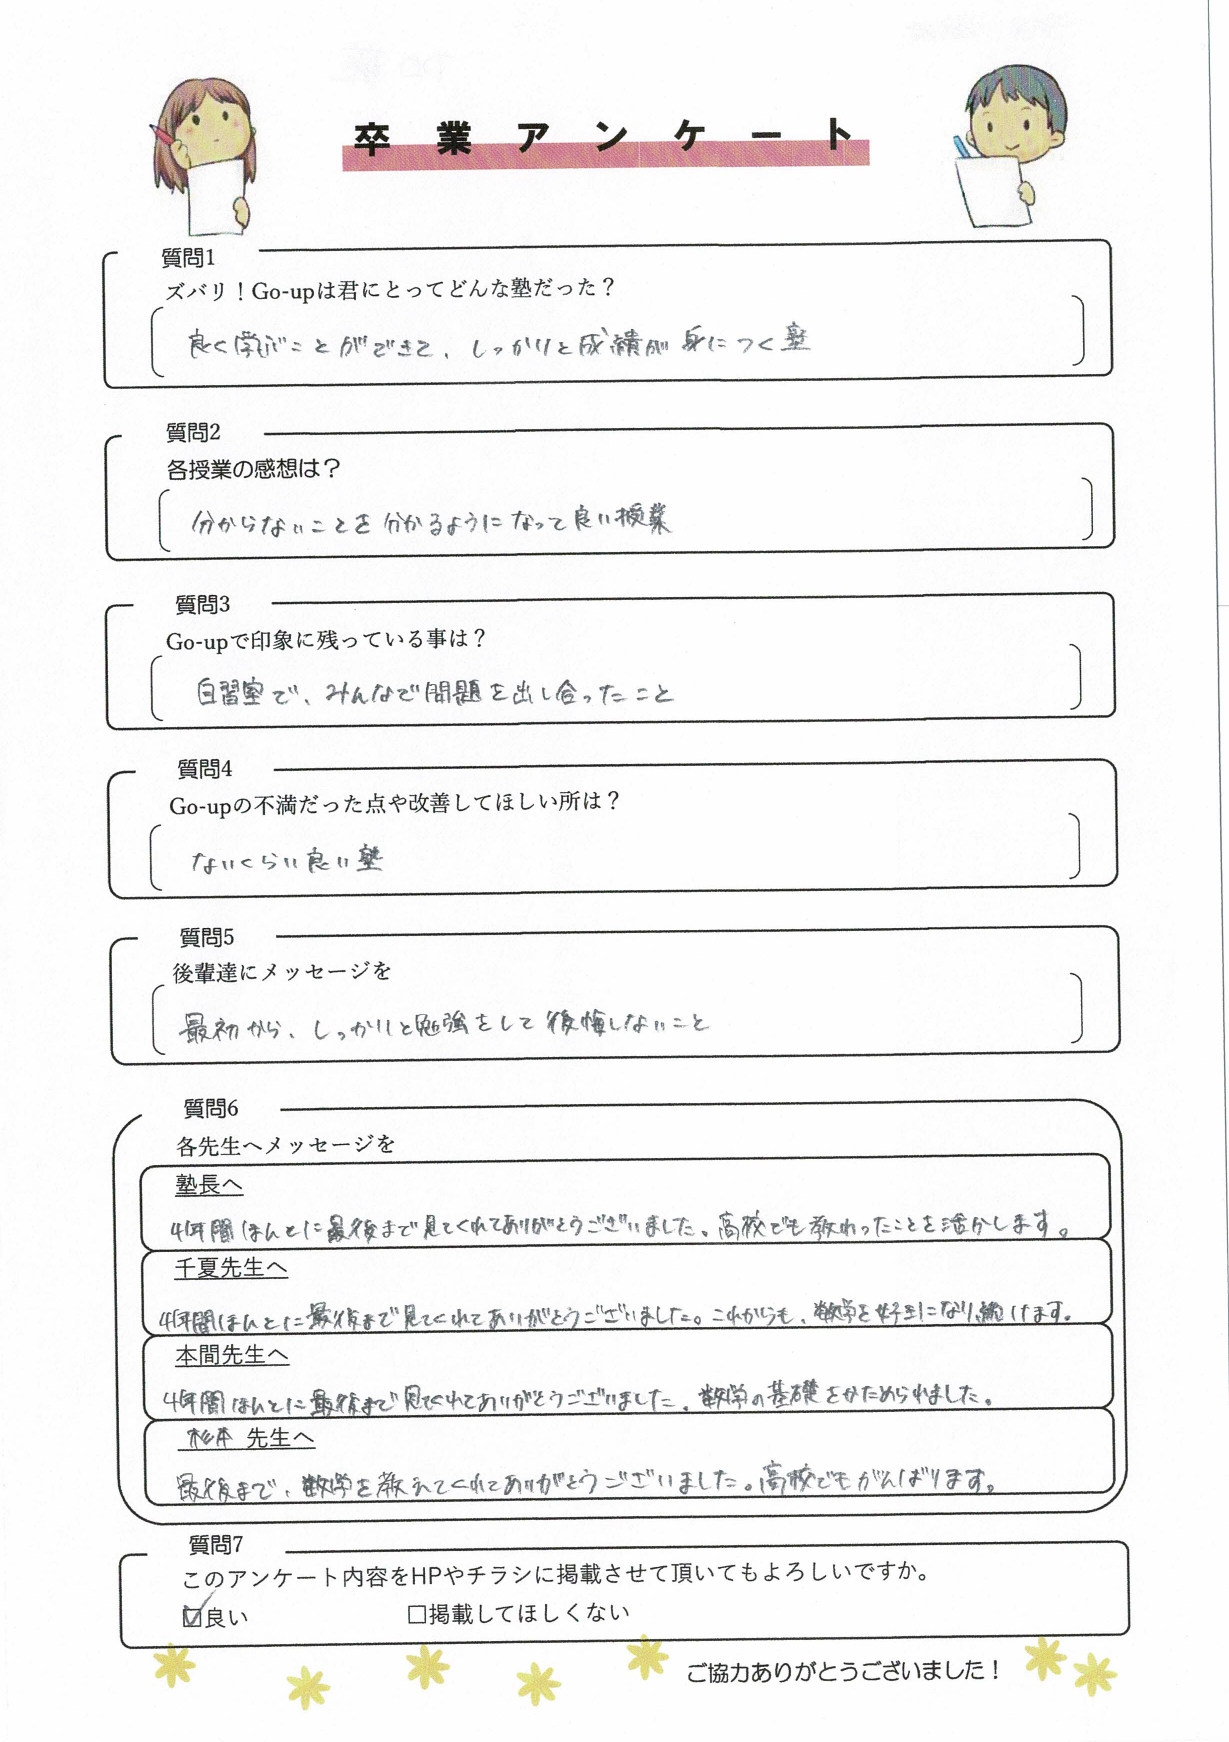 卒業アンケート
質問1
ズバリ！Go-upは君にとってどんな塾だった？
良く学ぶことができて、しっかりと成績が身につく塾
質問2
各授業の感想は？
分からないことを分かるようになって良い授業
質問3
Go-upで印象に残っている事は？
自習室で、みんなで問題を出し合ったこと
質問4
Go-upの不満だった点や改善してほしい所は？
ないくらい良い塾
質問5
後輩達にメッセージを
最初から、しっかりと勉強をして後悔しないこと
質問6
各先生へメッセージを
塾長へ
4年間ほんとに最後まで見てくれてありがとうございました。高校でも教わったことを活かします。
千夏先生へ
4年間ほんとに最後まで見てくれてありがとうございました。これからも、数学を好きになり続けます。
本間先生へ
4年間ほんとに最後まで見てくれてありがとうございました。数学の基礎をかためられました。
杉本 先生へ
最後まで、数学を教えてくれてありがとうございました。高校でもがんばります。
質問7
このアンケート内容をHPやチラシに掲載させて頂いてもよろしいですか。
☑良い □掲載してほしくない
ご協力ありがとうございました！